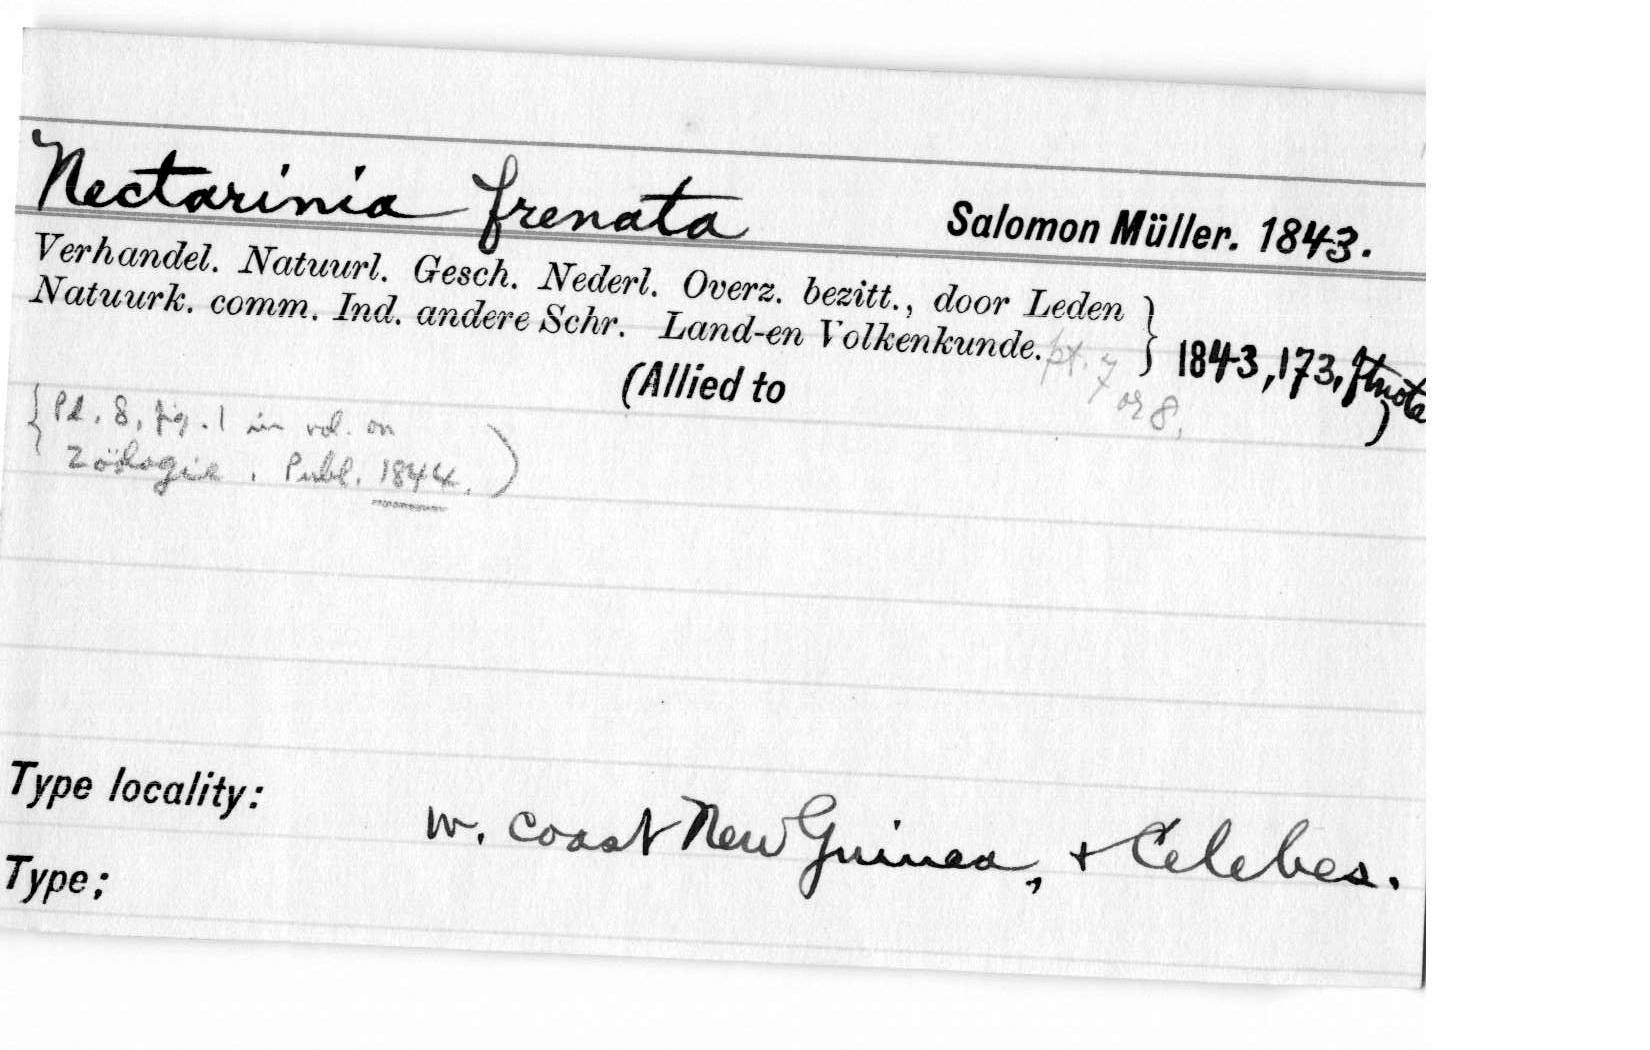 Nectarinia frenata Salomon Müller. 1843.
Verhandel. Natuurl. Gesch. Nederl. Overz. bezitt., door Leden }
Natuurk. comm. Ind. andere Schr. Land-en Volkenkunde. pt. 7 } 1843, 173, ftnote
or 8.
(Allied to )
{ Pl. 8, fig. 1 in vol. on
Zöologie. Publ. 1844. )
Type locality:
W. coast New Guinea, + Celebes.
Type;